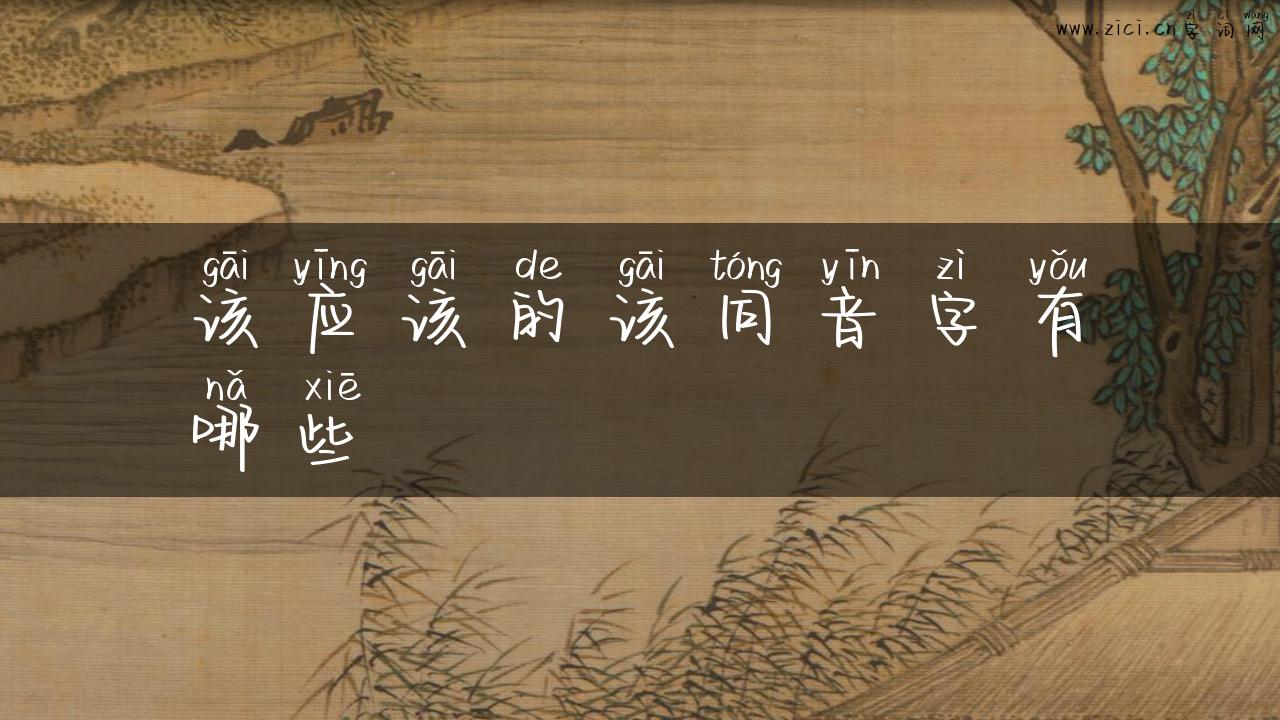 zì cí wǎng
www.zici.cn字词网
gāi yīng gāi de gāi tóng yīn zì yǒu
该应该的该同音字有
nǎ xiē
哪些